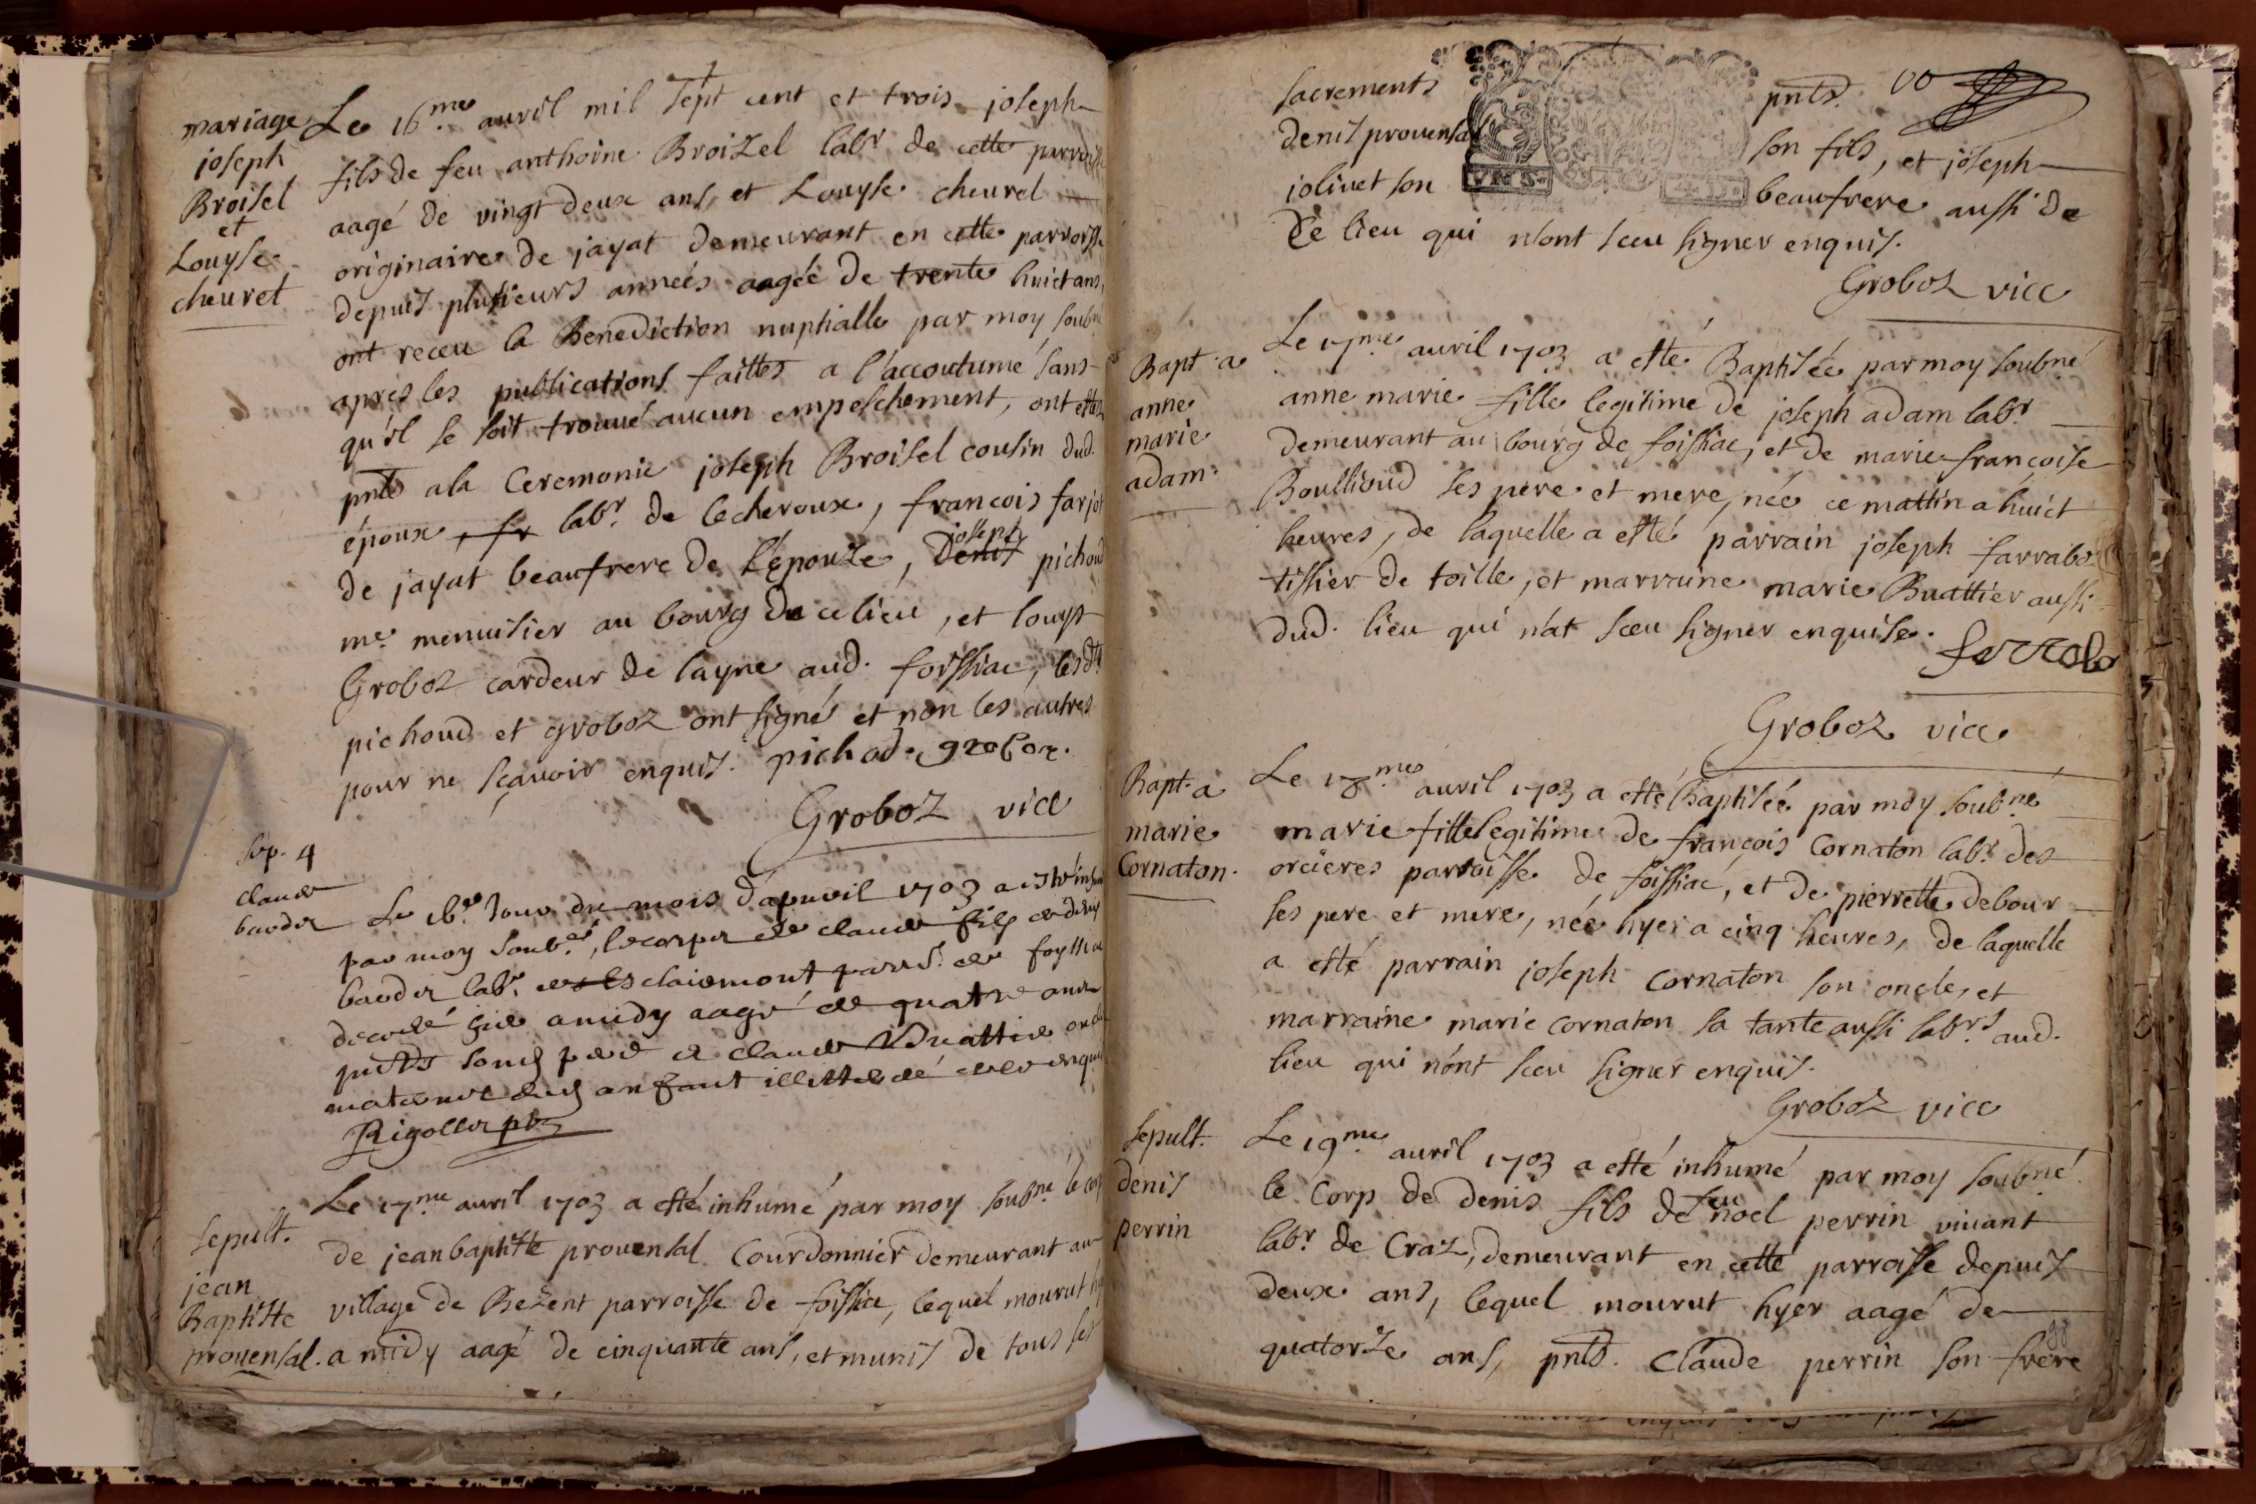 mariage
joseph
Broisel
et
Louyse
cheuret
Le 16.me auril mil sept cent et trois joseph
fils de feu anthoine Broizel labr de cette parroisse
aagé de vingt deux ans, et Louyse cheurel
originaire de jayat demeurant en cette parroisse
depuis plusieurs années aagée de trente huict ans,
ont receu la Benediction nuptialle par moy soubné
apres les publications faittes a l'accoutumé sans
qu'il se soit trouué aucun empeschement, ont estes
pnts a la Ceremonie joseph Broisel cousin dud.
époux, fr labr. de lecheroux, francois farjot
de jayat beaufrere de l'épouze, Denis joseph pichoud
me. menuisier au bourg de ce lieu, et louys
Groboz cardeur de layne aud. foissiac, lesdts
pichoud et groboz ont signé et non les autres
pour ne sçauoir enquis. pichod. groboz.
Groboz vice
sep. 4
claude
baudet
Le 16e Jour du mois d'apuril 1703 a esté inhumé
par moy soubné, le corps de claude fils de denis
baudet labr. de clairmont parr. de foyssia
decedé hier a midy aagé de quatre ans
pnts sond pere et claude Buattier oncle
maternel dud enfant illitterés de ce enquis
Rigollet pbr
Sepult.
jean
Baptiste
prouensal.
Le 17.me auril 1703 a esté inhumé par moy soubné le corp
de jean baptiste prouensal Courdonnier demeurant au
village de Bezent parroisse de foissia, lequel mourut
a midy aagé de cinquante ans, et munis de tous ses
sacrements pnts.
denis prouensal son fils, et joseph
joliuet son beaufrere aussi de
Ce lieu qui n'ont sceu signer enquis.
Groboz vice
Bapt. a
anne
marie
adam.
Le 17me auril 1703 a esté Baptisée par moy soubné
anne marie fille legitime de joseph adam labr
demeurant au bourg de foissiac, et de marie françoise
Boullioud ses pere et mere, née ce mattin a huict
heures, de laquelle a esté parrain joseph farrabo
tissier de toille, et marraine marie Buattier aussi
dud. lieu qui n'at sceu signer enquise. ferrabo
Groboz vice
Bapt. a
marie
Cornaton.
Le 18.me auril 1703 a esté Baptisée par moy soubné
marie fille legitime de françois Cornaton labr des
orcieres parroisse de foissiac, et de pierrette debour
ses pere et mere, née hyer a cinq heures, de laquelle
a esté parrain joseph Cornaton son oncle, et
marraine marie cornaton sa tante aussi labrs. aud.
lieu qui n'ont sceu signer enquis.
Groboz vice
Sepult.
denis
perrin
Le 19me auril 1703 a esté inhumé par moy soubné
le Corp de denis fils de feu noel perrin viuant
labr de Craz, demeurant en cette parroisse depuis
deux ans, lequel mourut hyer aagé de
quatorze ans, pnts. Claude perrin son frere